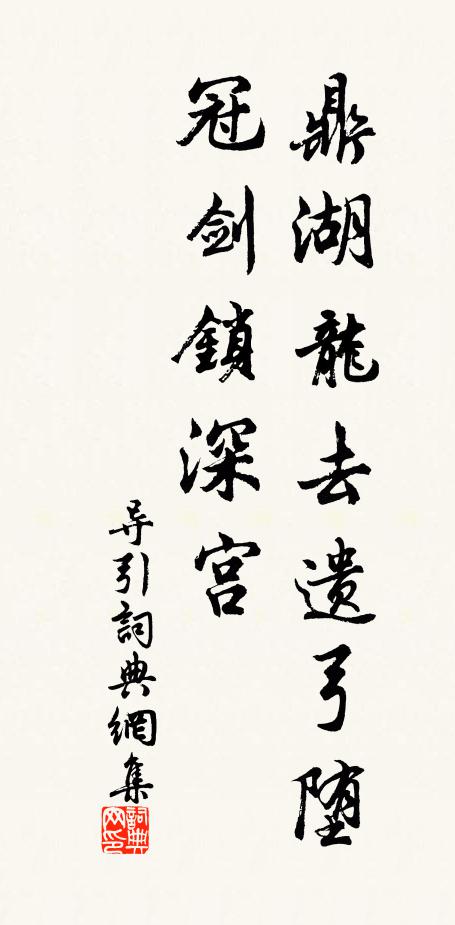 鼎湖龍去遺弓堕
冠剑鎖深宫
导引詞典網集
詞典网印